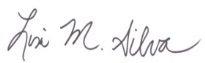 Lisi M. Silva